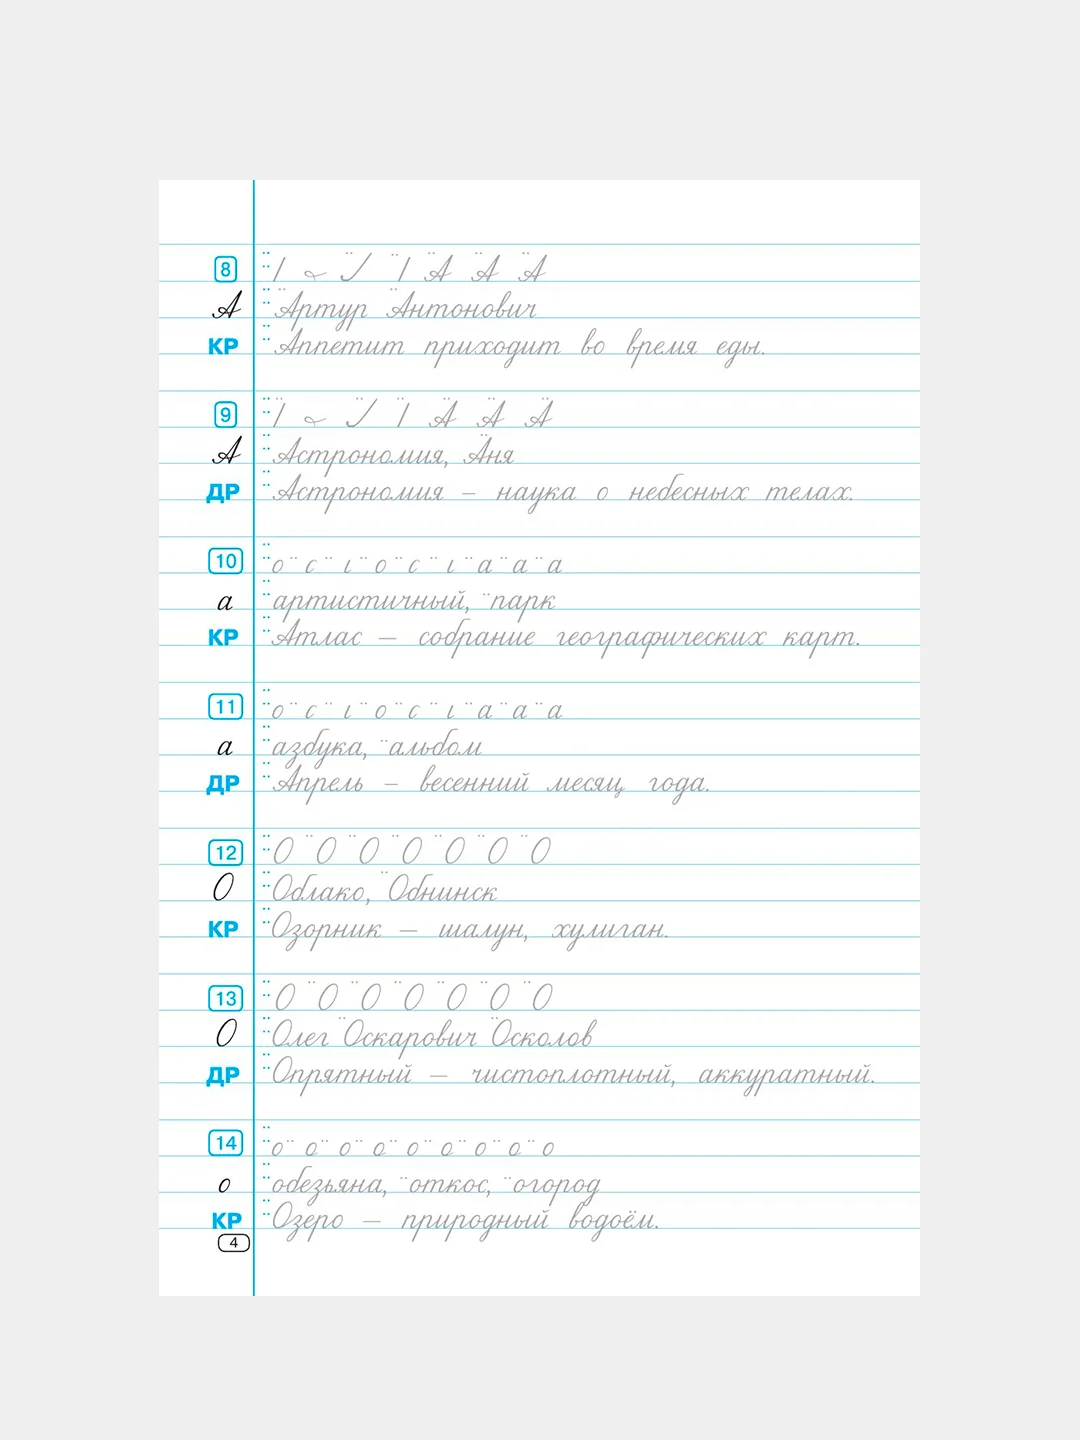 8 А А А
А Артур Антонович
КР Аппетит приходит во время еды.
9 А А А
А Астрономия, Аня
ДР Астрономия – наука о небесных телах.
10 о с ι о с ι а а а
а артистичный, парк
КР Атлас – собрание географических карт.
11 о с ι о с ι а а а
а азбука, альбом
ДР Апрель – весенний месяц года.
12 О О О О О О О
О Облако, Обнинск
КР Озорник – шалун, хулиган.
13 О О О О О О О
О Олег Оскарович Осколов
ДР Опрятный – чистоплотный, аккуратный.
14 о о о о о о о о о
о обезьяна, откос, огород
КР Озеро – природный водоём.
4